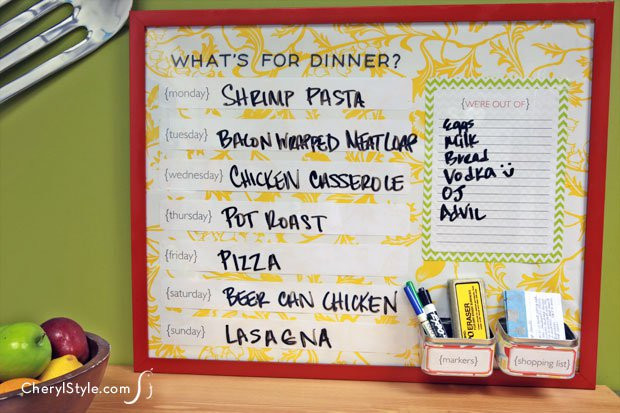 WHAT'S FOR DINNER?
{monday} SHRIMP PASTA
{tuesday} BACON WRAPPED MEATLOAF
{wednesday} CHICKEN CASSEROLE
{thursday} POT ROAST
{friday} PIZZA
{saturday} BEER CAN CHICKEN
{sunday} LASAGNA
{WE'RE OUT OF}
Eggs
Milk
Bread
Vodka
OJ
Advil
ERASER
{markers}
{shopping list}
CherylStyle.com